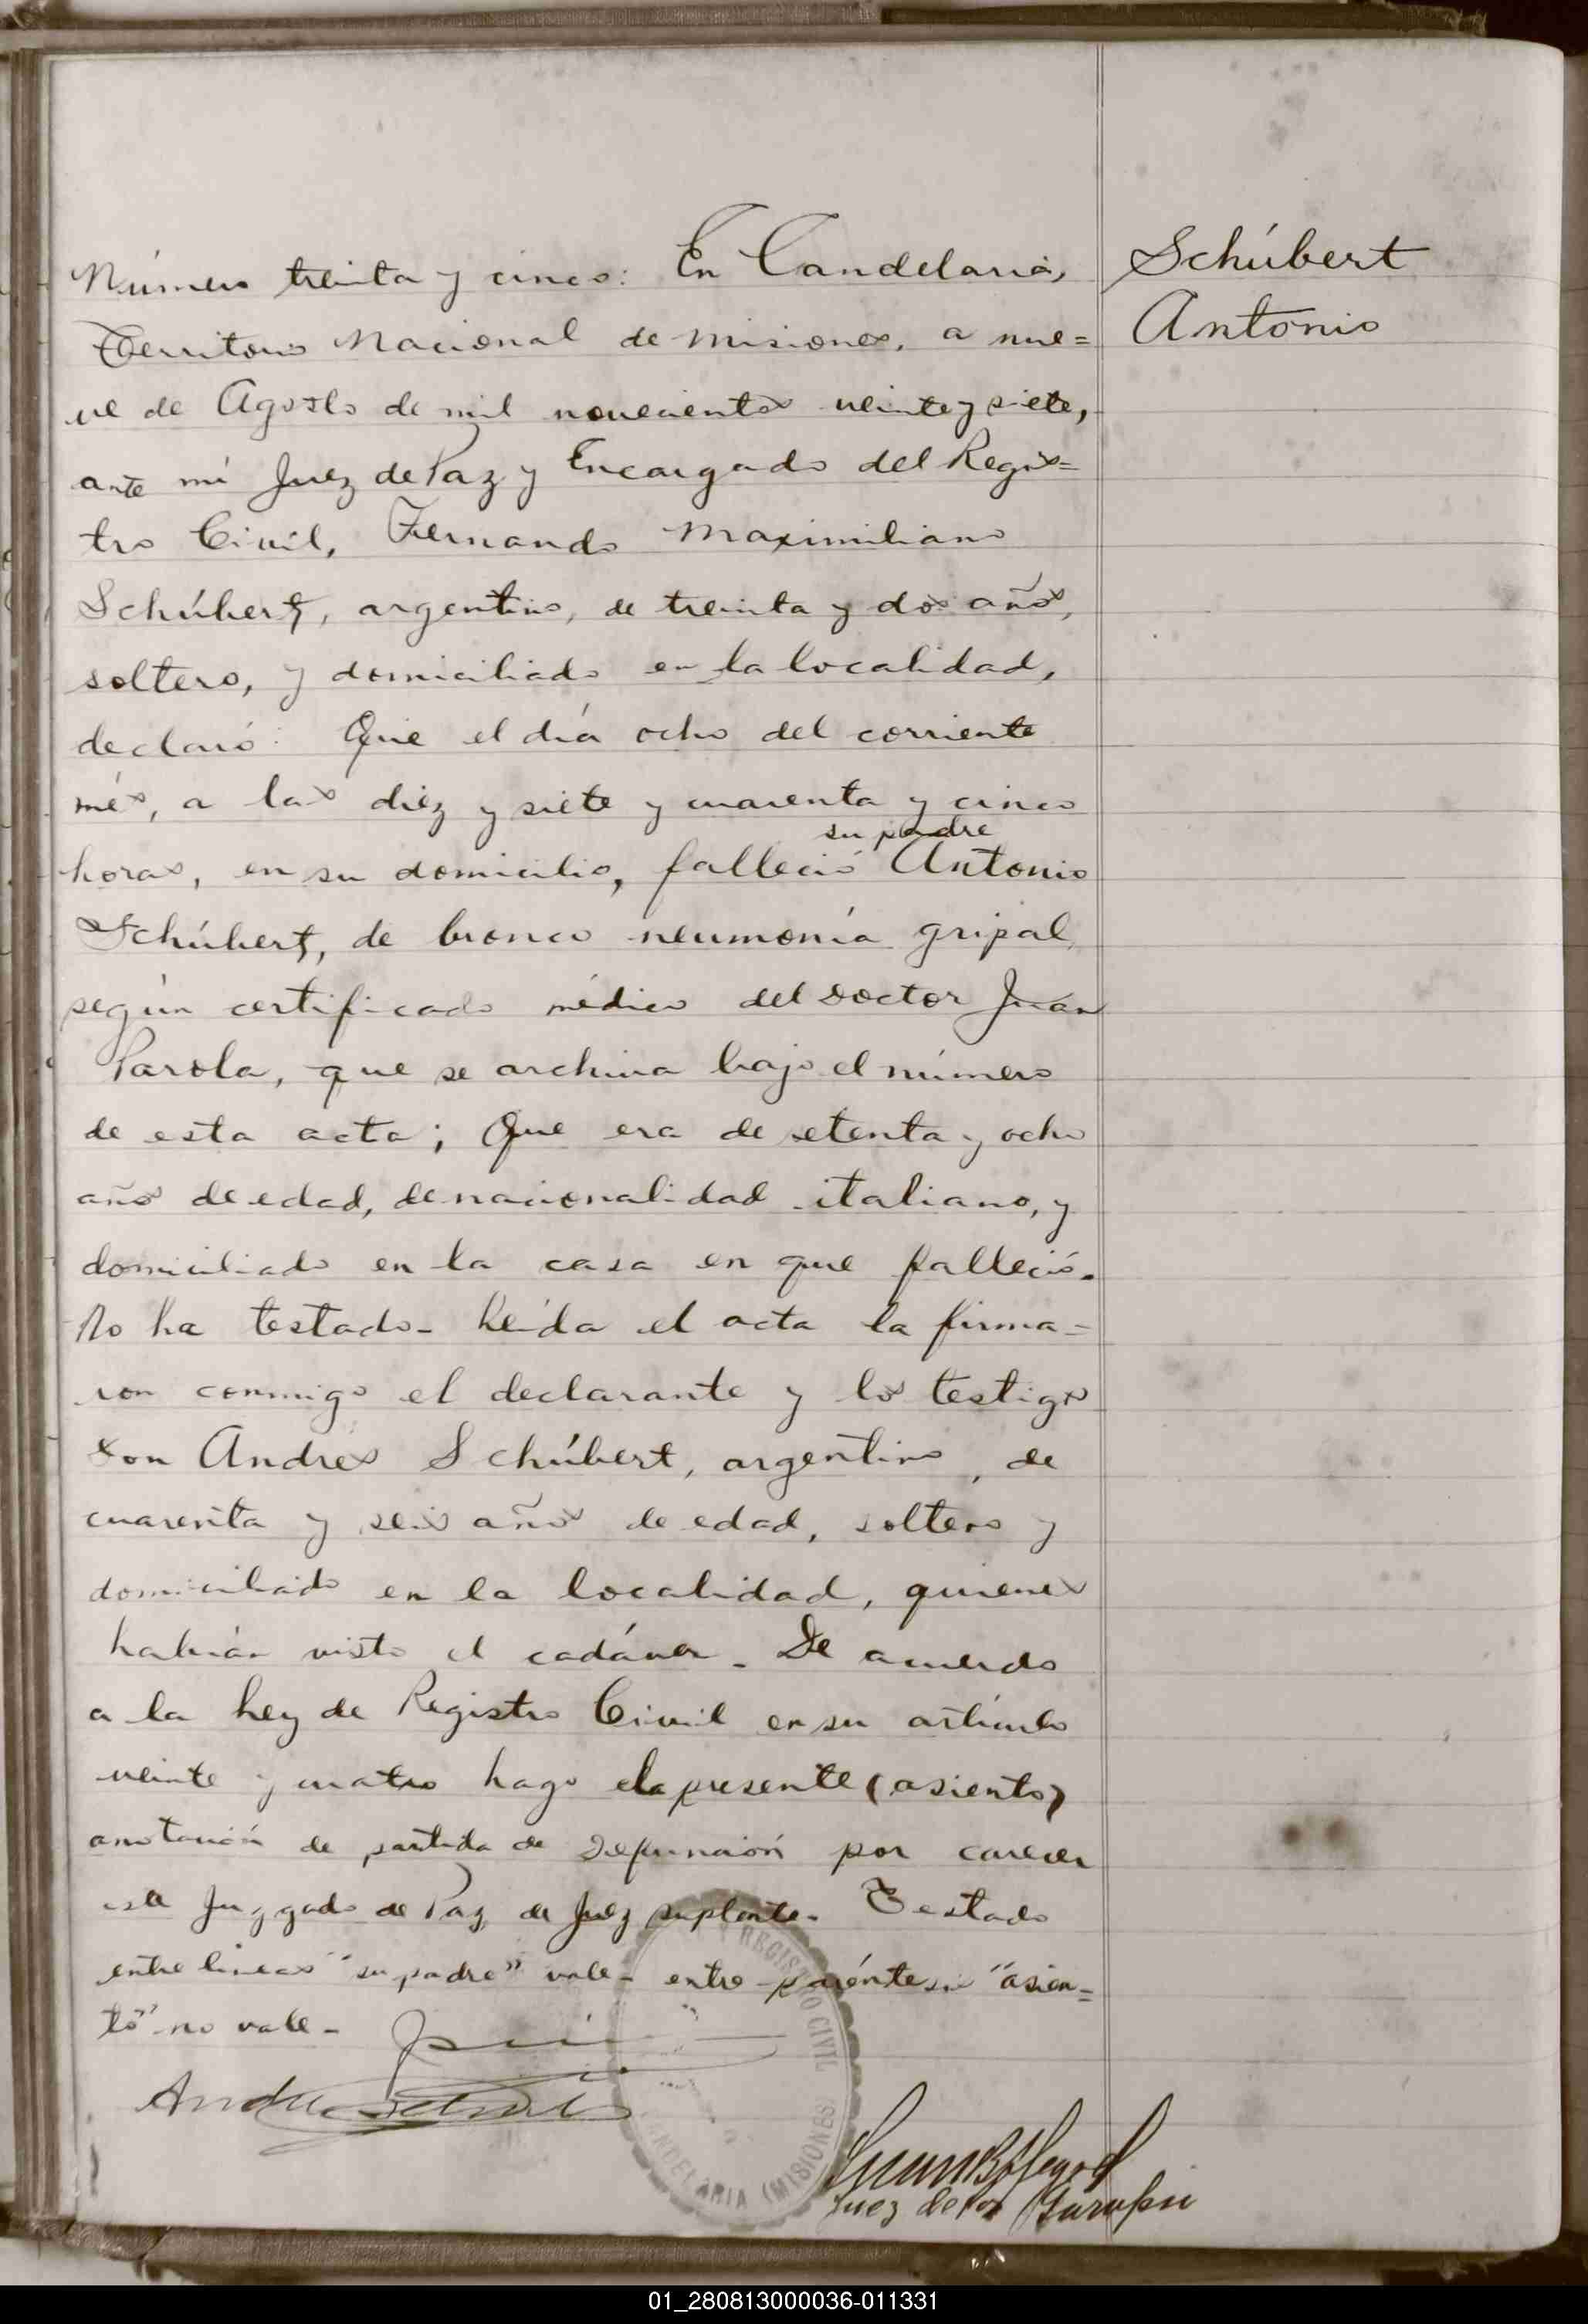 Número treinta y cinco: En Candelaria,
Territorio Nacional de Misiones, a nue=
ve de Agosto de mil novecientos veinte y siete,
ante mí Juez de Paz y Encargado del Regis=
tro Civil, Fernando Maximiliano
Schúbert, argentino, de treinta y dos años,
soltero, y domiciliado en la localidad,
declaró: Que el día ocho del corriente
més, a las diez y siete y cuarenta y cinco
su padre
horas, en su domicilio, falleció Antonio
Schúbert, de bronco neumonía gripal
según certificado médico del Doctor Juan
Parola, que se archiva bajo el número
de esta acta; Que era de setenta y ocho
años de edad, de nacionalidad italiano, y
domiciliado en la casa en que falleció.
No ha testado - Leída el acta la firma=
ron conmigo el declarante y los testigos
Don Andrés Schúbert, argentino, de
cuarenta y seis años de edad, soltero y
domiciliado en la localidad, quienes
habían visto el cadáver - De acuerdo
a la Ley de Registro Civil en su artículo
veinte y cuatro hago la presente (asiento)
anotación de partida de Defunción por carecer
este Juzgado de Paz de Juez suplente - Testado
entre lineas "su padre" vale - entre paréntesis "asien=
to" no vale -
Schúbert
Antonio
REGISTRO CIVIL
CANDELARIA (MISIONES)
Juez de Paz
01_280813000036-011331